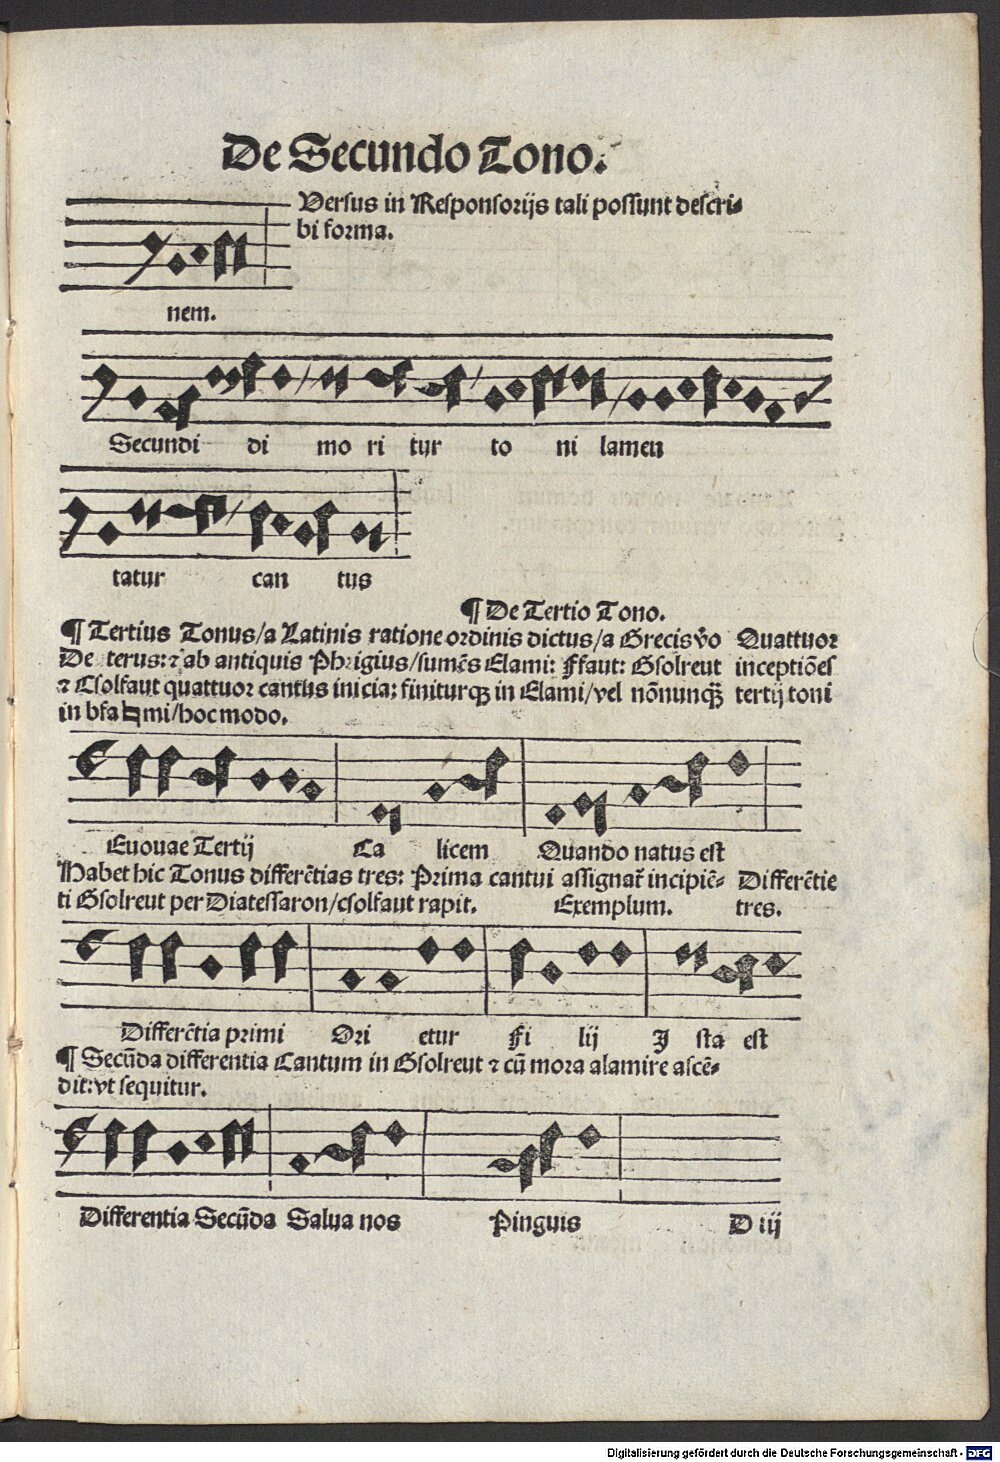 De Secundo Tono.
Versus in Responsorijs tali possunt descri⸗
bi forma.
nem.
Secundi di mo ri tur to ni lamen
tatur can tus
¶ De Tertio Tono.
¶ Tertius Tonus/a Latinis ratione ordinis dictus/a Grecis v̄o Quattuor
De terus: ⁊ ab antiquis Phrigius/sumēs Elami: Ffaut: Gsolreut inceptiōes
⁊ Csolfaut quattuor cantus inicia: finiturq̄ in Elami/vel nōnunq̄ tertij toni
in bfa♮mi/hoc modo.
Euouae Tertij Ca licem Quando natus est
Habet hic Tonus differētias tres: Prima cantui assignat̄ incipiē⸗ Differētie
ti Gsolreut per Diatessaron/csolfaut rapit. Exemplum. tres.
Differētia primi Ori etur Fi lij I sta est
¶ Secūda differentia Cantum in Gsolreut ⁊ cū mora alamire ascē⸗
dit: vt sequitur.
Differentia Secūda Salua nos Pinguis D iij
Digitalisierung gefördert durch die Deutsche Forschungsgemeinschaft - DFG